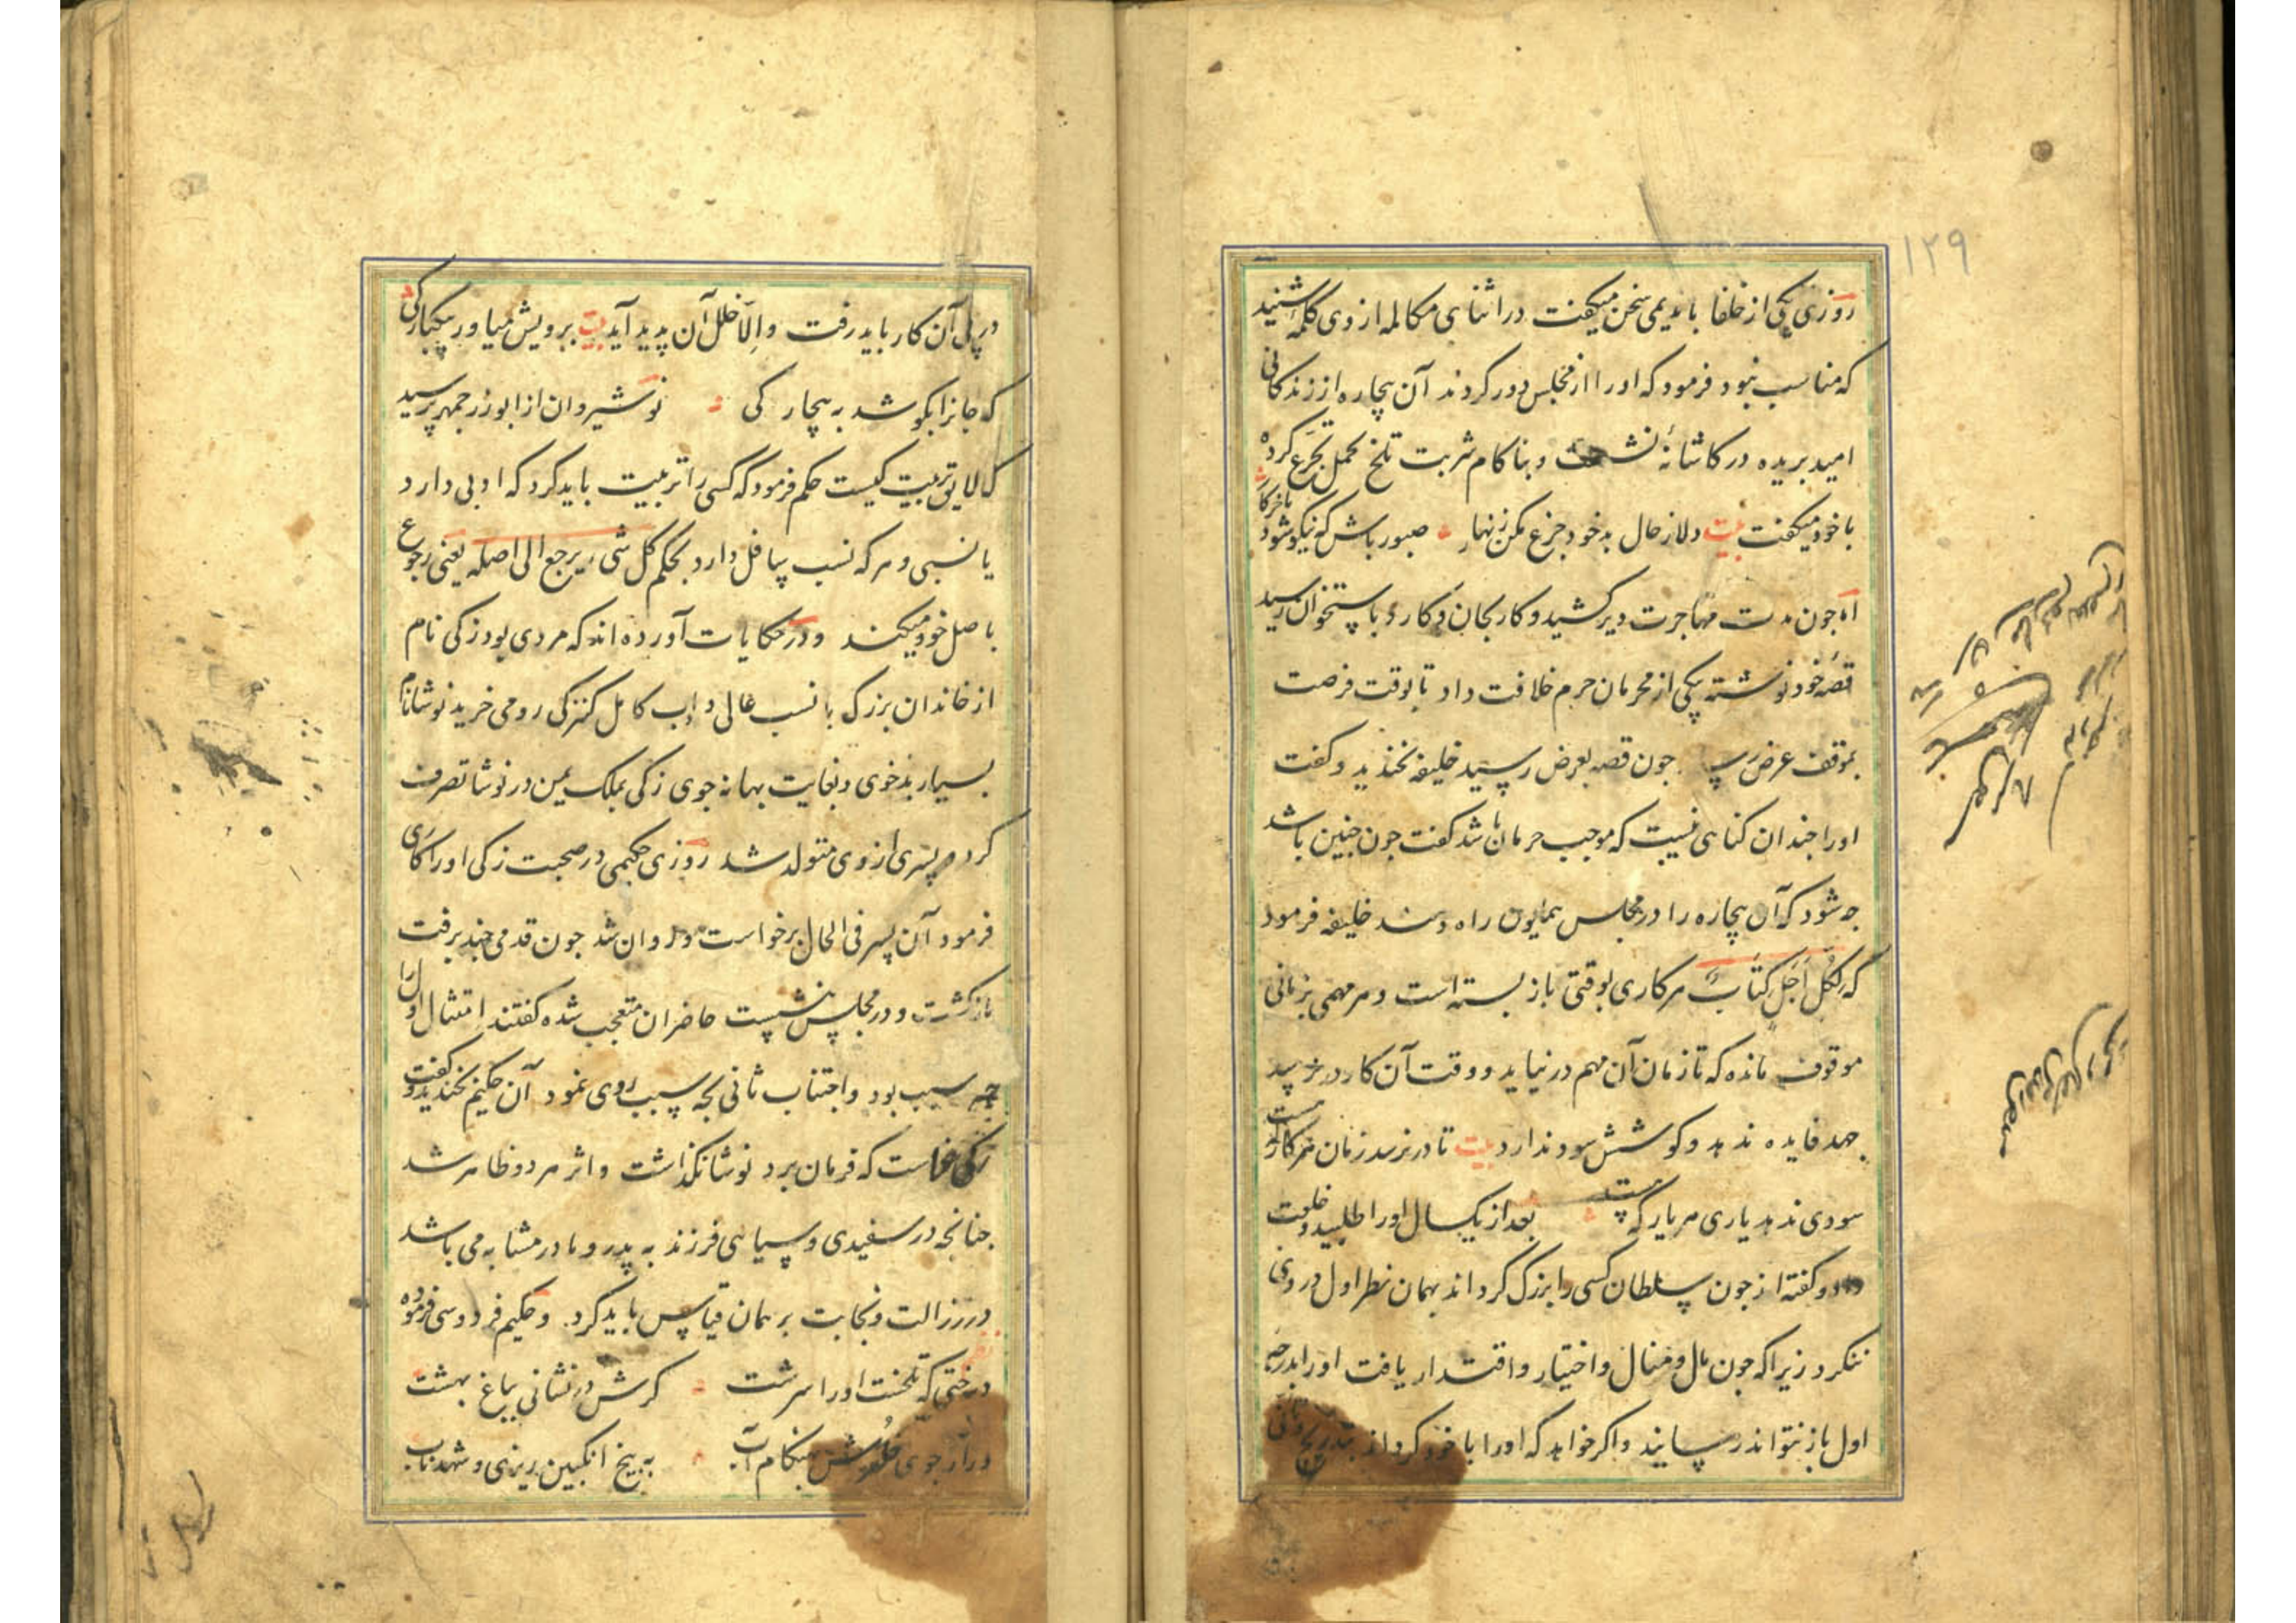 ۱۲۹
روزی یکی از خلفا با ندیمی سخن میکفت در اثنای مکالمه از وی کلمهٔ شنید
که مناسب نبود فرمود که اورا از مجلس دور کردند آن بیچاره از زندکانی
امید بریده در کاشانهٔ نشست و بناکام شربت تلخ تحمل تجرّع کرده
با خود میکفت بیت دلا ز حال بد خود جزع مکن زنهار صبور باش که نیکو شود باخر کار
اه جون مدت مهاجرت دیر کشید و کار بجان و کارد باستخوان رسید
قصهٔ خود نوشته بیکی از محرمان حرم خلافت داد تا بوقت فرصت
بموقف عرض جون قصه بعرض رسید خلیفه بخندید و کفت
اورا جندان کناهی نیست که موجب حرمان باشد کفت جون جنین باشد
جه شود که آن بیچاره را در مجلس همایون راه دهند خلیفه فرمود
که لِکُلِّ اَجَلٍ کِتَابٌ هر کاری بوقتی باز بسته است و هر مهمی بزمانی
موقوف مانده که تا زمان آن مهم در نیاید و وقت آن کار در نرسد
جهد فایده ندهد و کوشش سود ندارد بیت تا در نرسد زمان هر کار که هست
سودی ندهد یاری هر یار که هست بعد از یکسال اورا طلبید و خلعت
داد و کفته اند جون سلطان کسی را بزرک کرداند بهمان نظر اول در وی
ننکرد زیرا که جون مال و منال و اختیار و اقتدار یافت اورا بدرجهٔ
اول باز نتواند رسانید و اکر خواهد که اورا با خود کرداند بتدریج و تانی
در پی آن کار باید رفت و اِلّا خلل آن پدید آید بیت برویش میاور بیکبارکی
که جانرا بکوشد به بیچارکی نوشیروان از ابوزرجمهر پرسید
که لایق تربیت کیست حکم فرمود که کسی را تربیت باید کرد که ادبی دارد
یا نسبی و هر که نسب سافل دارد بحکم کل شیء یرجع الی اصله یعنی رجوع
باصل خود میکند و در حکایات آورده اند که مردی بود زکی نام
از خاندان بزرک با نسب عالی و ادب کامل کنیزکی رومی خرید نوشا نام
بسیار بدخوی و بغایت بهانه جوی زکی بملک یمین در نوشا تصرف
کرد پسری از وی متولد شد روزی حکیمی در صحبت زکی اورا کاری
فرمود آن پسر فی الحال برخواست و روان شد جون قدمی جند برفت
بازکشت و در مجلس بنشست حاضران متعجب شده کفتند امتثال اول را
جه سبب بود و اجتناب ثانی بجه سبب روی نمود آن حکیم بخندید و کفت
زکی خواست که فرمان برد نوشا نکذاشت و اثر هر دو ظاهر شد
جنانجه در سفیدی و سیاهی فرزند به پدر و مادر مشابه می باشد
در رزالت و نجابت بر همان قیاس باید کرد. و حکیم فردوسی فرموده
درختی که تلخست اورا سرشت کرش در نشانی بباغ بهشت
ور از جوی خلدش بهنکام آب به بیخ انکبین ریزی و شهد ناب